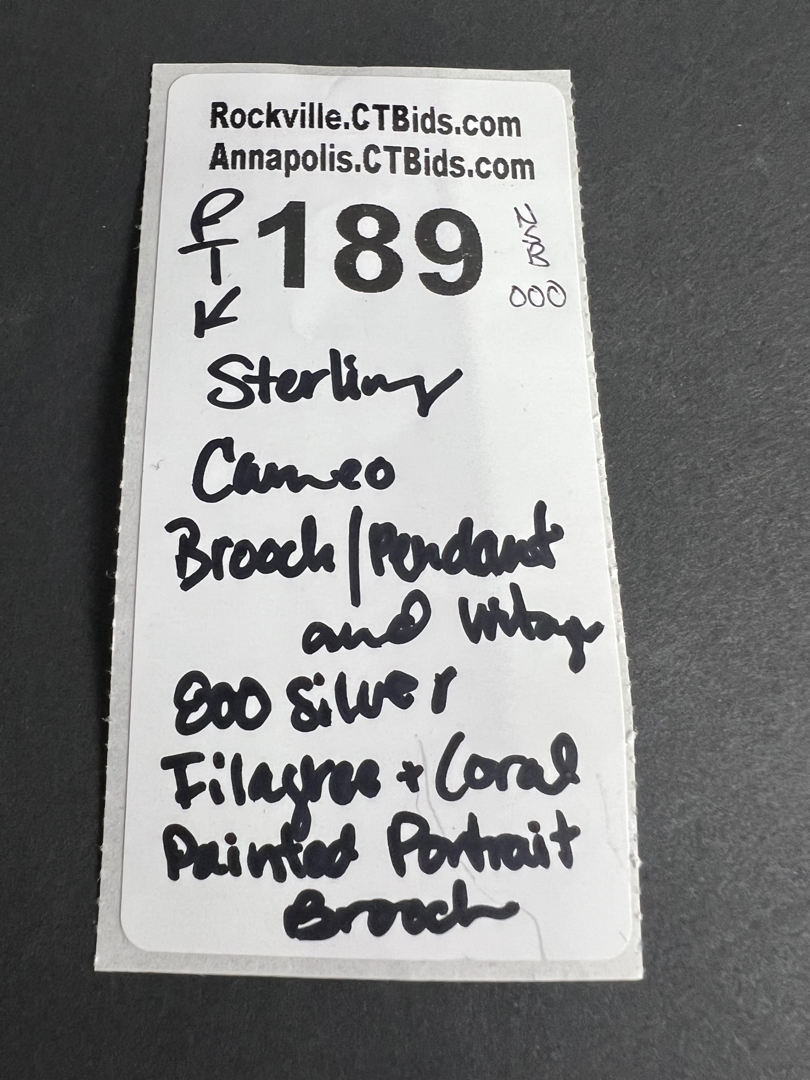 Rockville.CTBids.com
Annapolis.CTBids.com
PTK
189
NSR
000
Sterling
Cameo
Brooch/Pendant
and Vintage
800 Silver
Filagree + Coral
Painted Portrait
Brooch